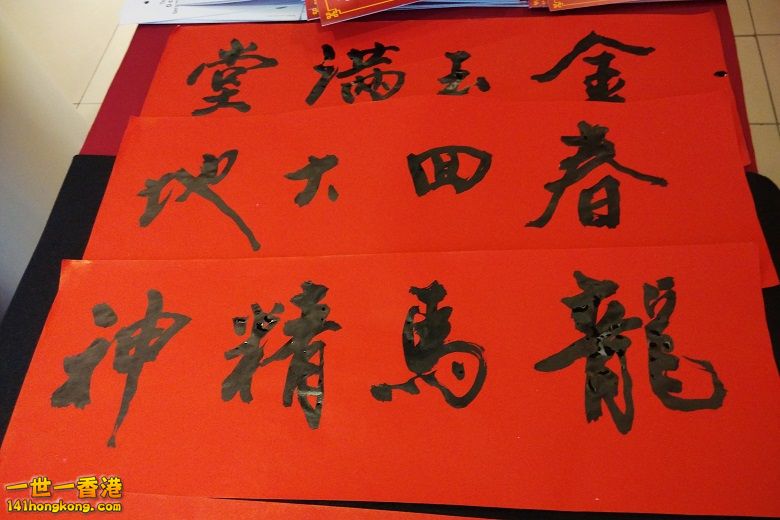 金玉滿堂
春回大地
龍馬精神
一世一香港
141hongkong.com